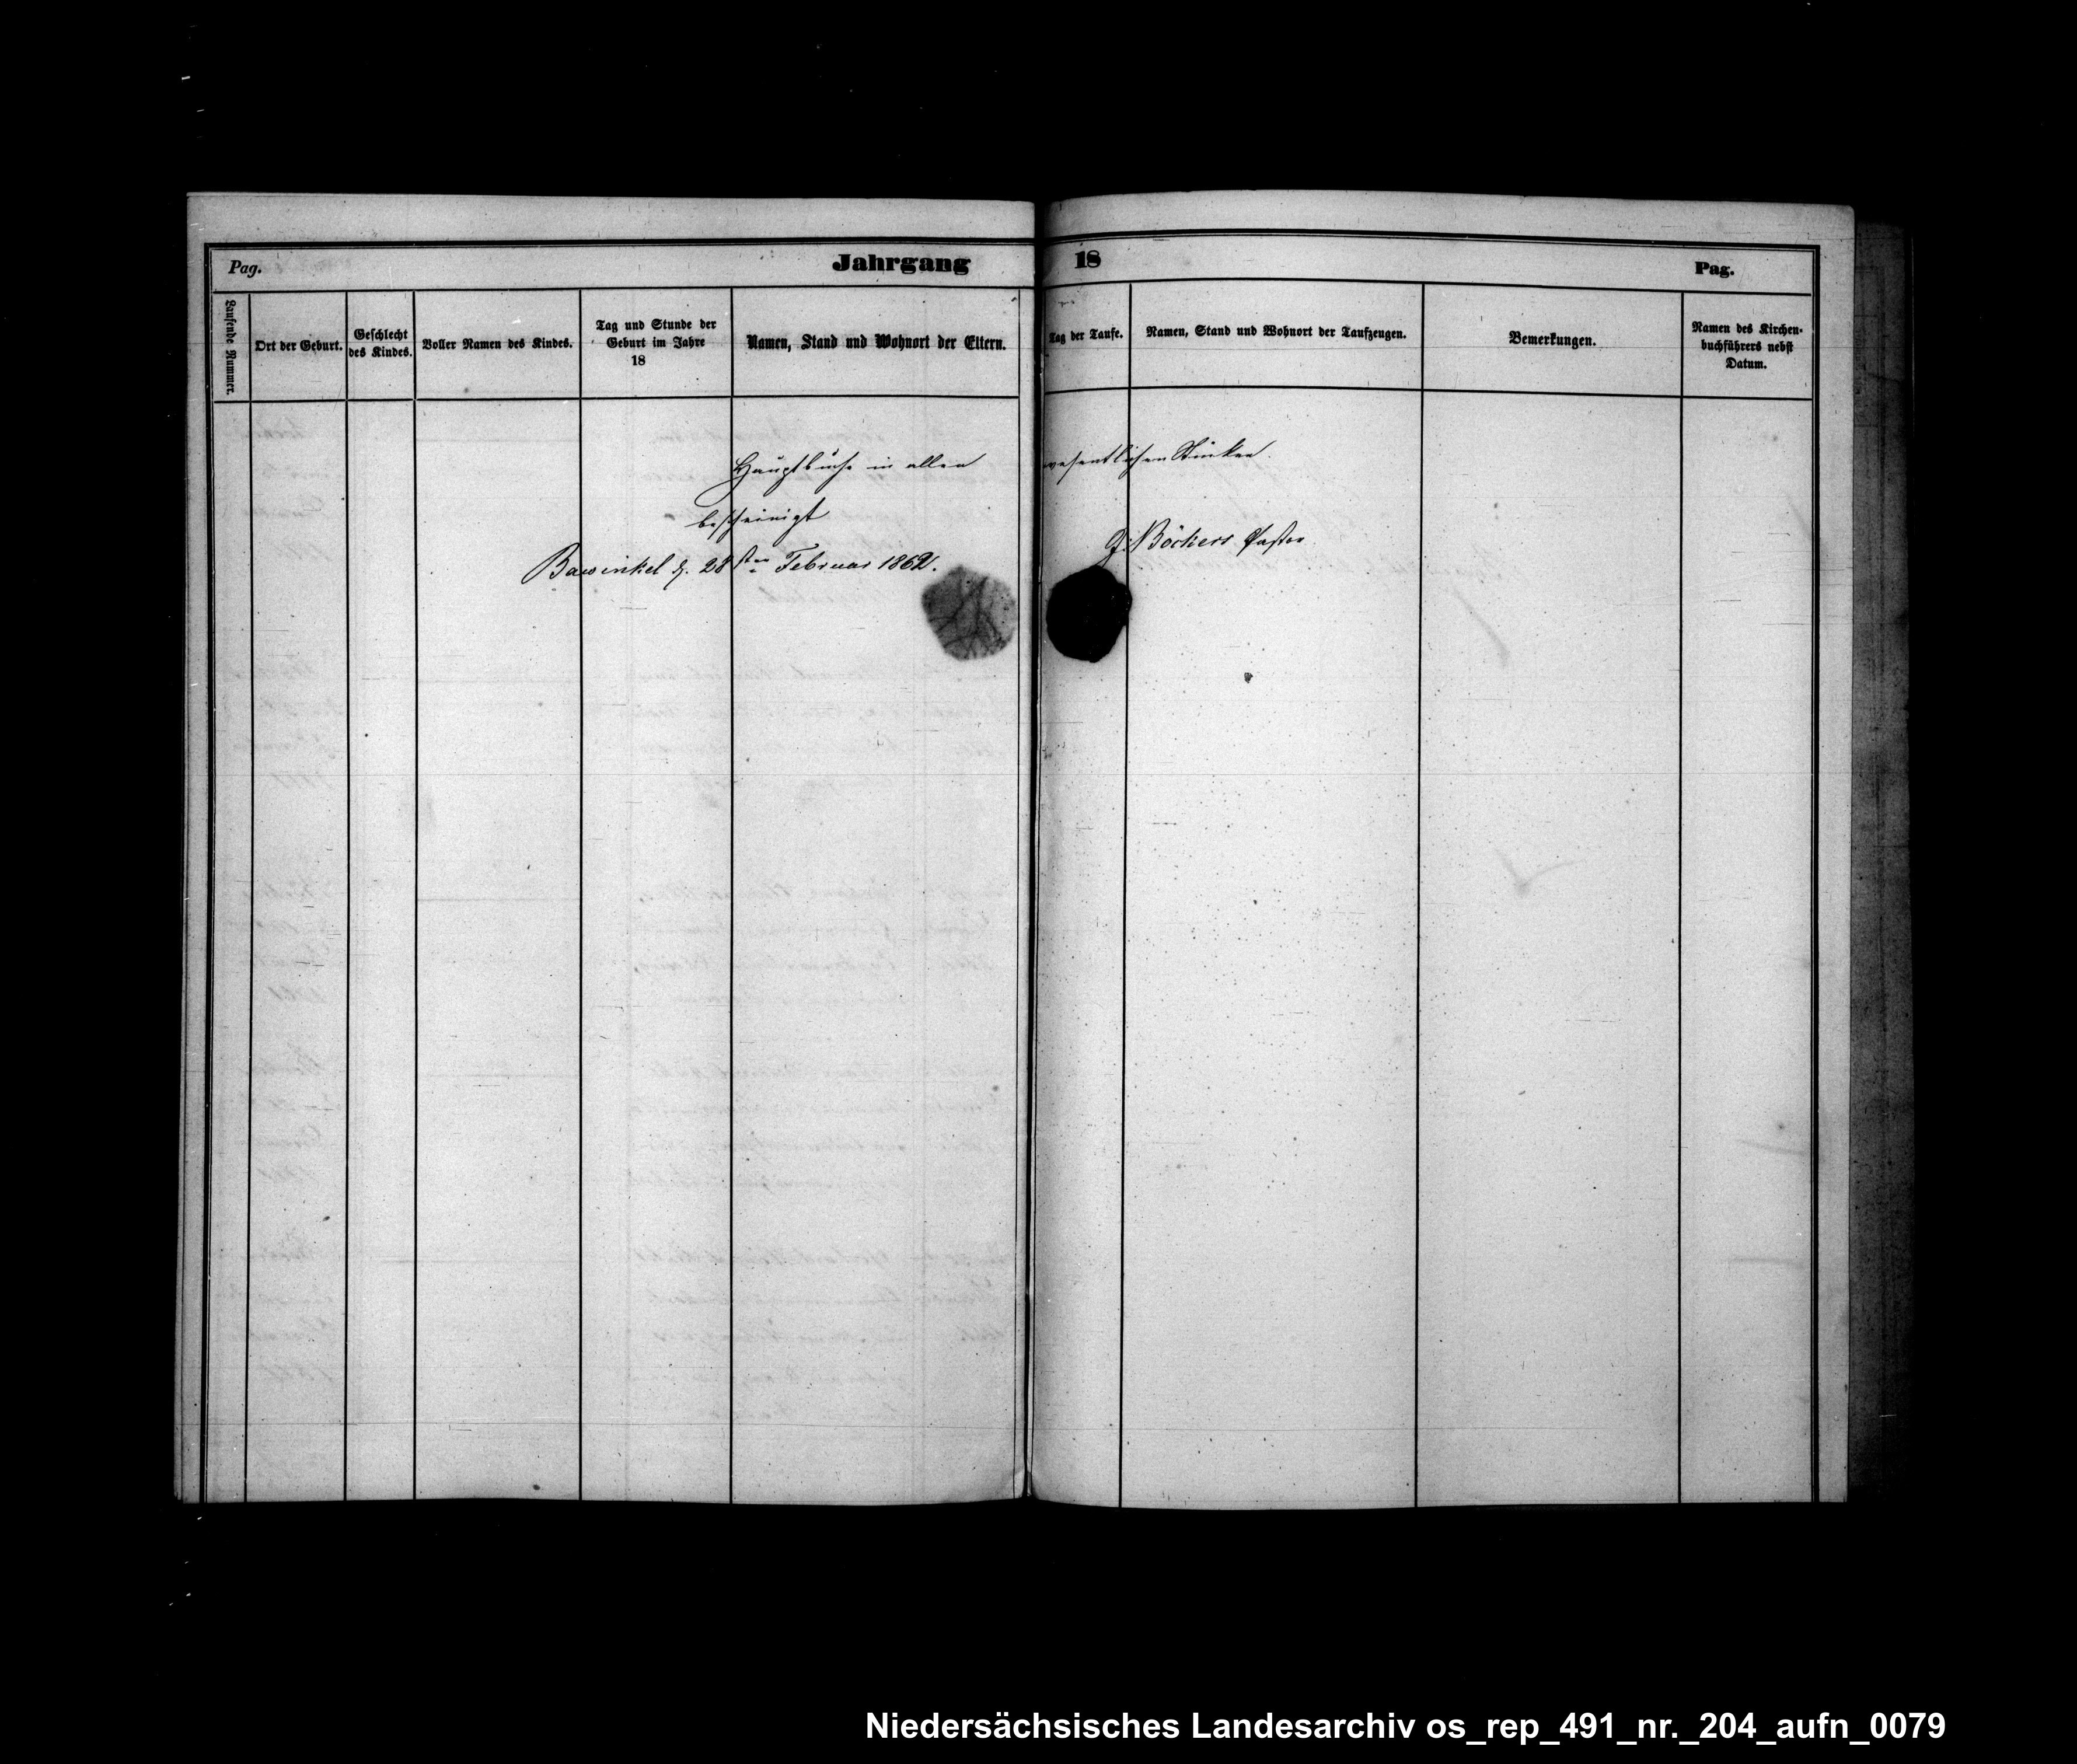 Pag.
Jahrgang 18
Pag.
Laufende Nummer.
Ort der Geburt.
Geschlecht
des Kindes.
Voller Namen des Kindes.
Tag und Stunde der
Geburt im Jahre
18
Namen, Stand und Wohnort der Eltern.
Tag der Taufe.
Namen, Stand und Wohnort der Taufzeugen.
Bemerkungen.
Namen des Kirchen-
buchführers nebst
Datum.
Hauptbuche in allen wesentlichen Stücken.
bescheinigt
Bawinkel d. 28sten Februar 1862.
Böckers Pastor
Niedersächsisches Landesarchiv os_rep_491_nr._204_aufn_0079